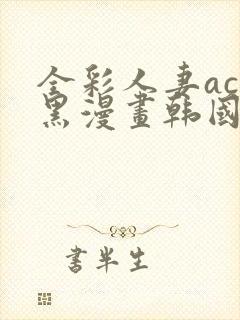 全彩人妻ac
黑漫畫韩國
書半生